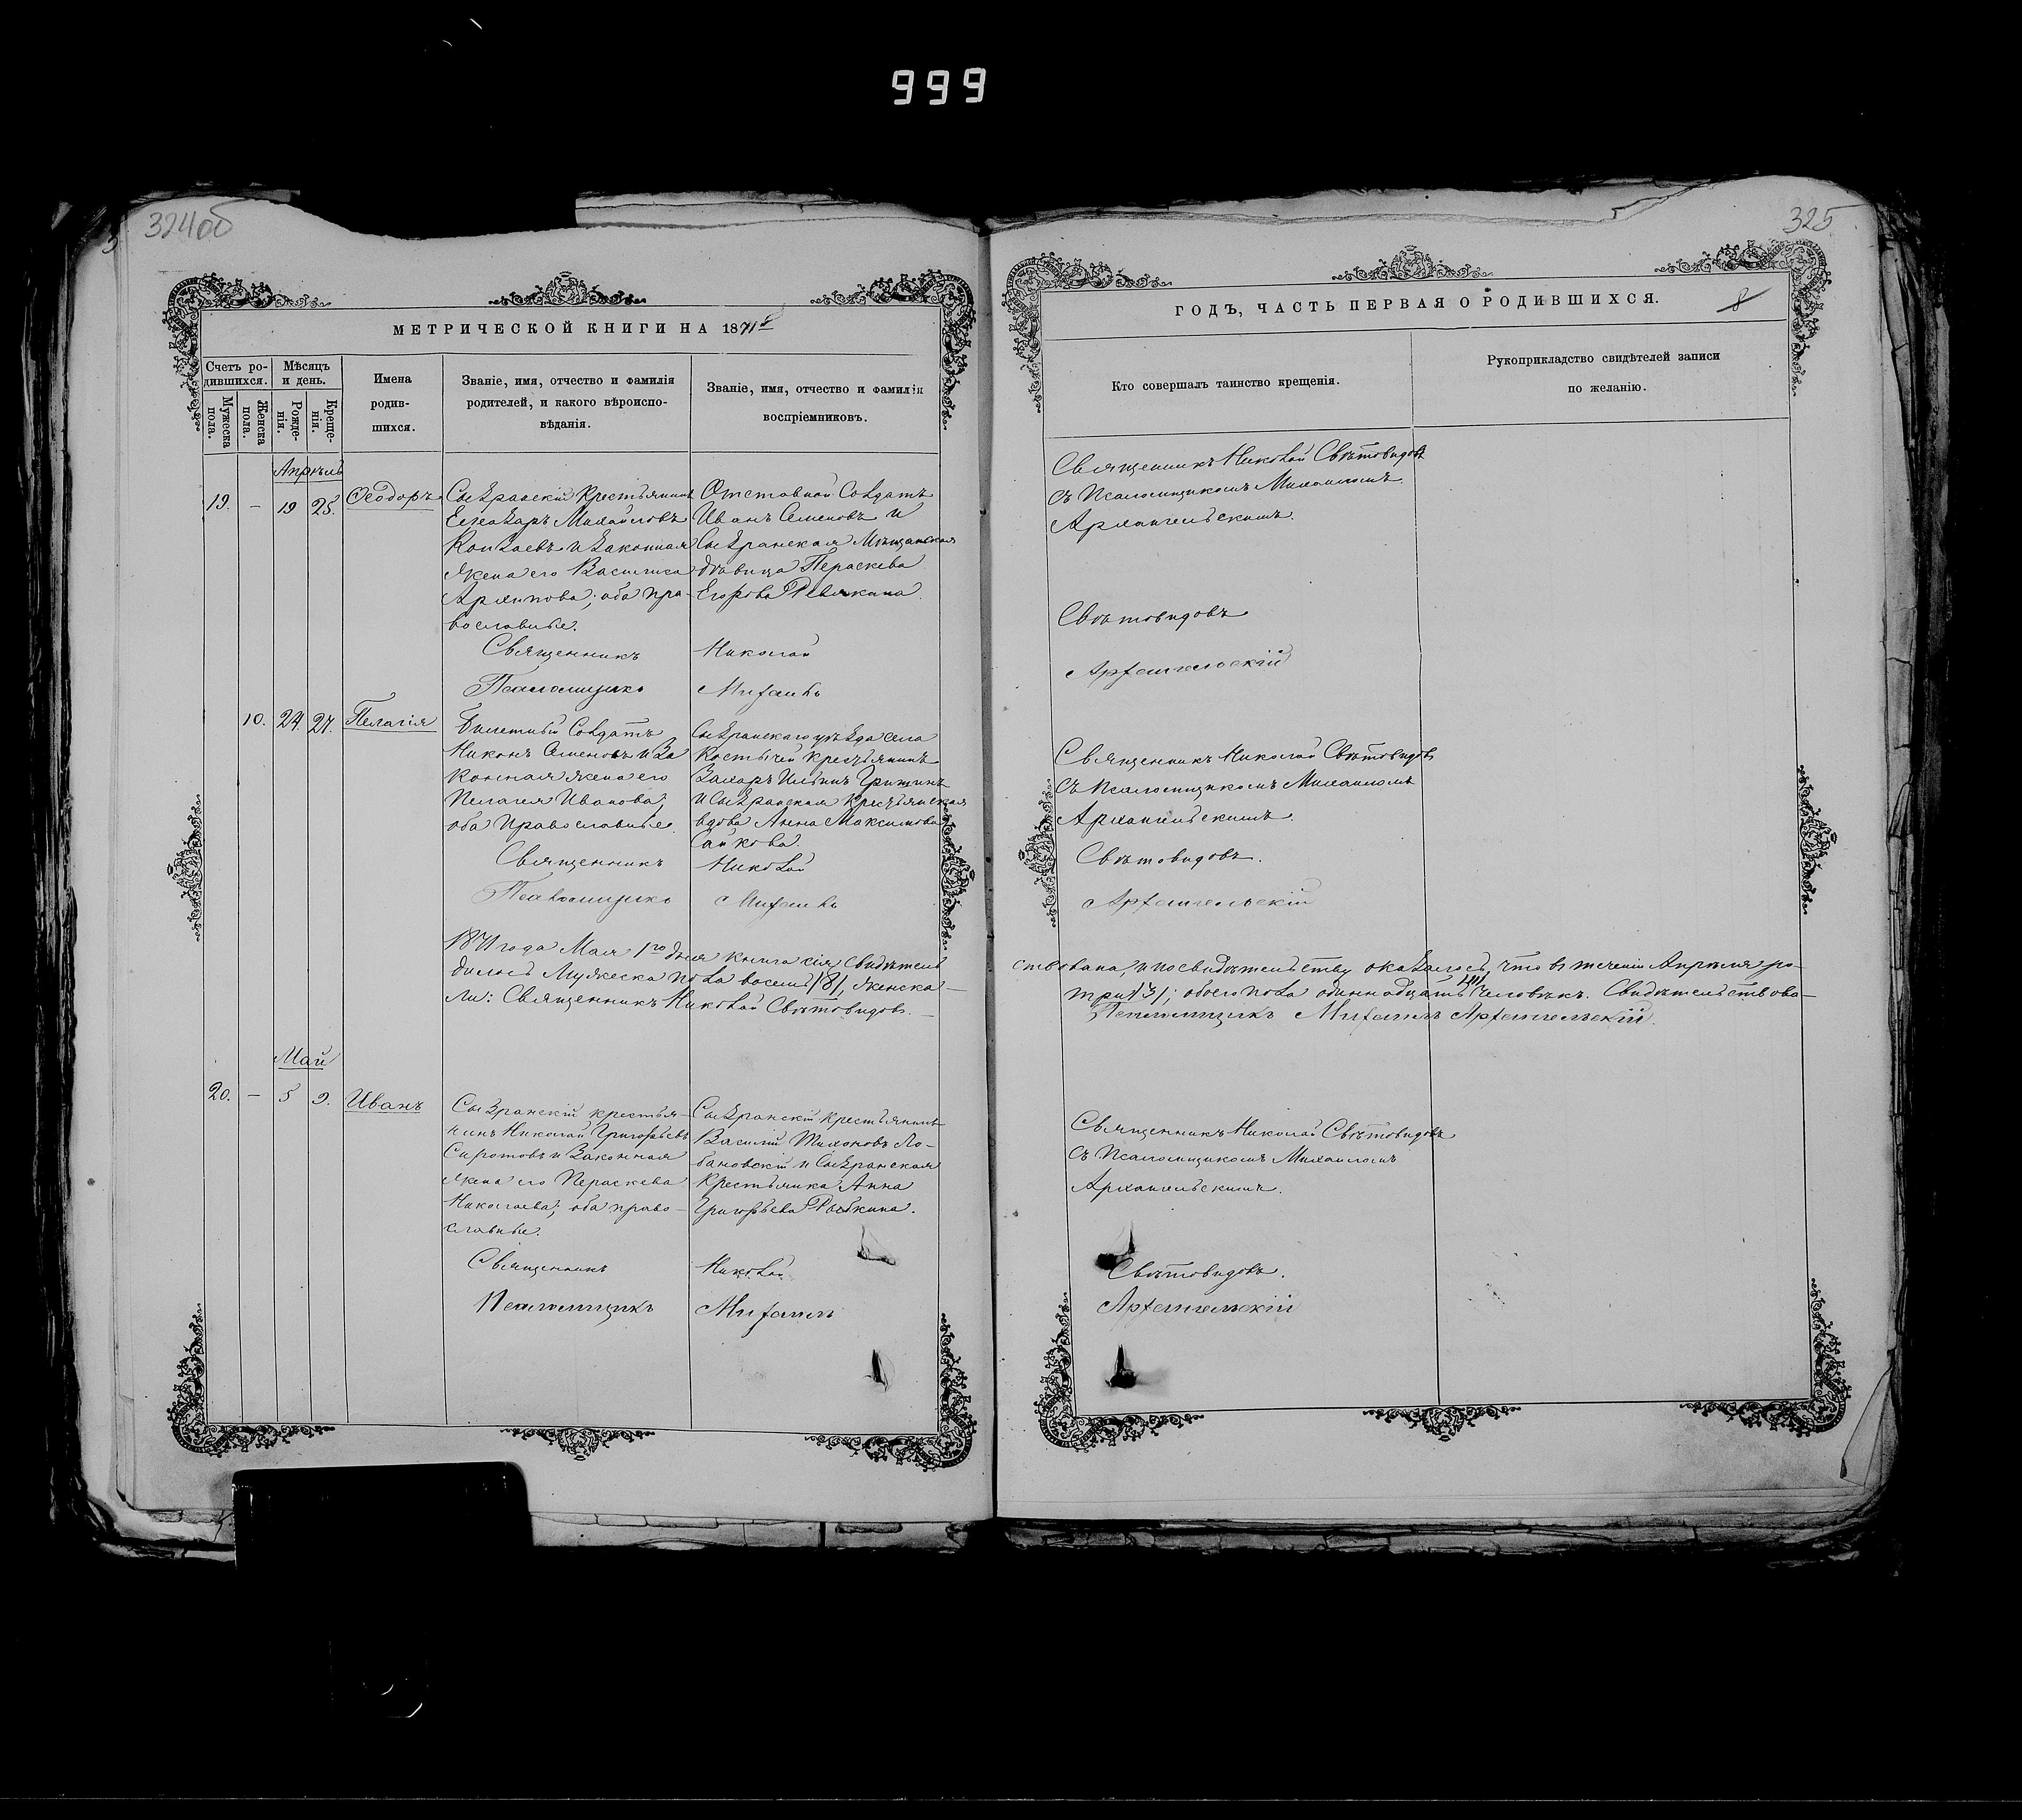 999
324об
325
МЕТРИЧЕСКОЙ КНИГИ НА 1871й
ГОДЪ, ЧАСТЬ ПЕРВАЯ О РОДИВШИХСЯ.
8
Счетъ ро-
дившихся.
Мужеска пола.
Женска пола.
Мѣсяцъ
и день.
Рожде-
нія.
Креще-
нія.
Имена
родив-
шихся.
Званіе, имя, отчество и фамилія
родителей, и какого вѣроиспо-
вѣданія.
Званіе, имя, отчество и фамилія
воспріемниковъ.
Кто совершалъ таинство крещенія.
Рукоприкладство свидѣтелей записи
по желанію.
Апрѣль
19. – 19 25. Ѳеодоръ
Сызранскій крестьянинъ
Елеазаръ Михайловъ
и законная
жена его Васса
Архипова; оба пра-
вославные.
Отставной Солдатъ
Иванъ Семеновъ и
Сызранская Мѣщанская
дѣвица Параскева
Егорова Ревякина.
Священникъ Николай Свѣтовидовъ
съ Псаломщикомъ Михаиломъ
Архангельскимъ.
Священникъ Николай Свѣтовидовъ
Псаломщикъ Михаилъ Архангельскій
10. 24. 27. Пелагія
Билетный Солдатъ
Никонъ Семеновъ и за
конная жена его
Пелагея Иванова;
оба Православные.
Сызранскаго уѣзда села
Костычей крестьянинъ
Захаръ Ильинъ Гришинъ
и Сызранская крестьянская
вдова Анна Максимова
Сайкова.
Священникъ Николай Свѣтовидовъ
съ Псаломщикомъ Михаиломъ
Архангельскимъ.
Священникъ Николай Свѣтовидовъ.
Псаломщикъ Михаилъ Архангельскій
1871 года Мая 1го дня книга сія свидѣтель
ствована, и по свидѣтельству оказалось, что въ теченіи Апрѣля ро-
дилось Мужеска пола восемь /8/, женска –
три /3/; обоего пола одиннадцать /11/ человѣкъ. Свидѣтельствова-
ли: Священникъ Николай Свѣтовидовъ. –
Псаломщикъ Михаилъ Архангельскій.
Май
20. – 5 9. Иванъ
Сызранскій крестья-
нинъ Николай Григорьевъ
Сиротовъ и законная
жена его Параскева
Николаева; оба право-
славные.
Сызранскій крестьянинъ
Василій Тихоновъ Ло-
бановскій и Сызранская
Крестьянка Анна
Григорьева Рыбкина.
Священникъ Николай Свѣтовидовъ
съ Псаломщикомъ Михаиломъ
Архангельскимъ.
Священникъ Николай Свѣтовидовъ.
Псаломщикъ Михаилъ Архангельскій